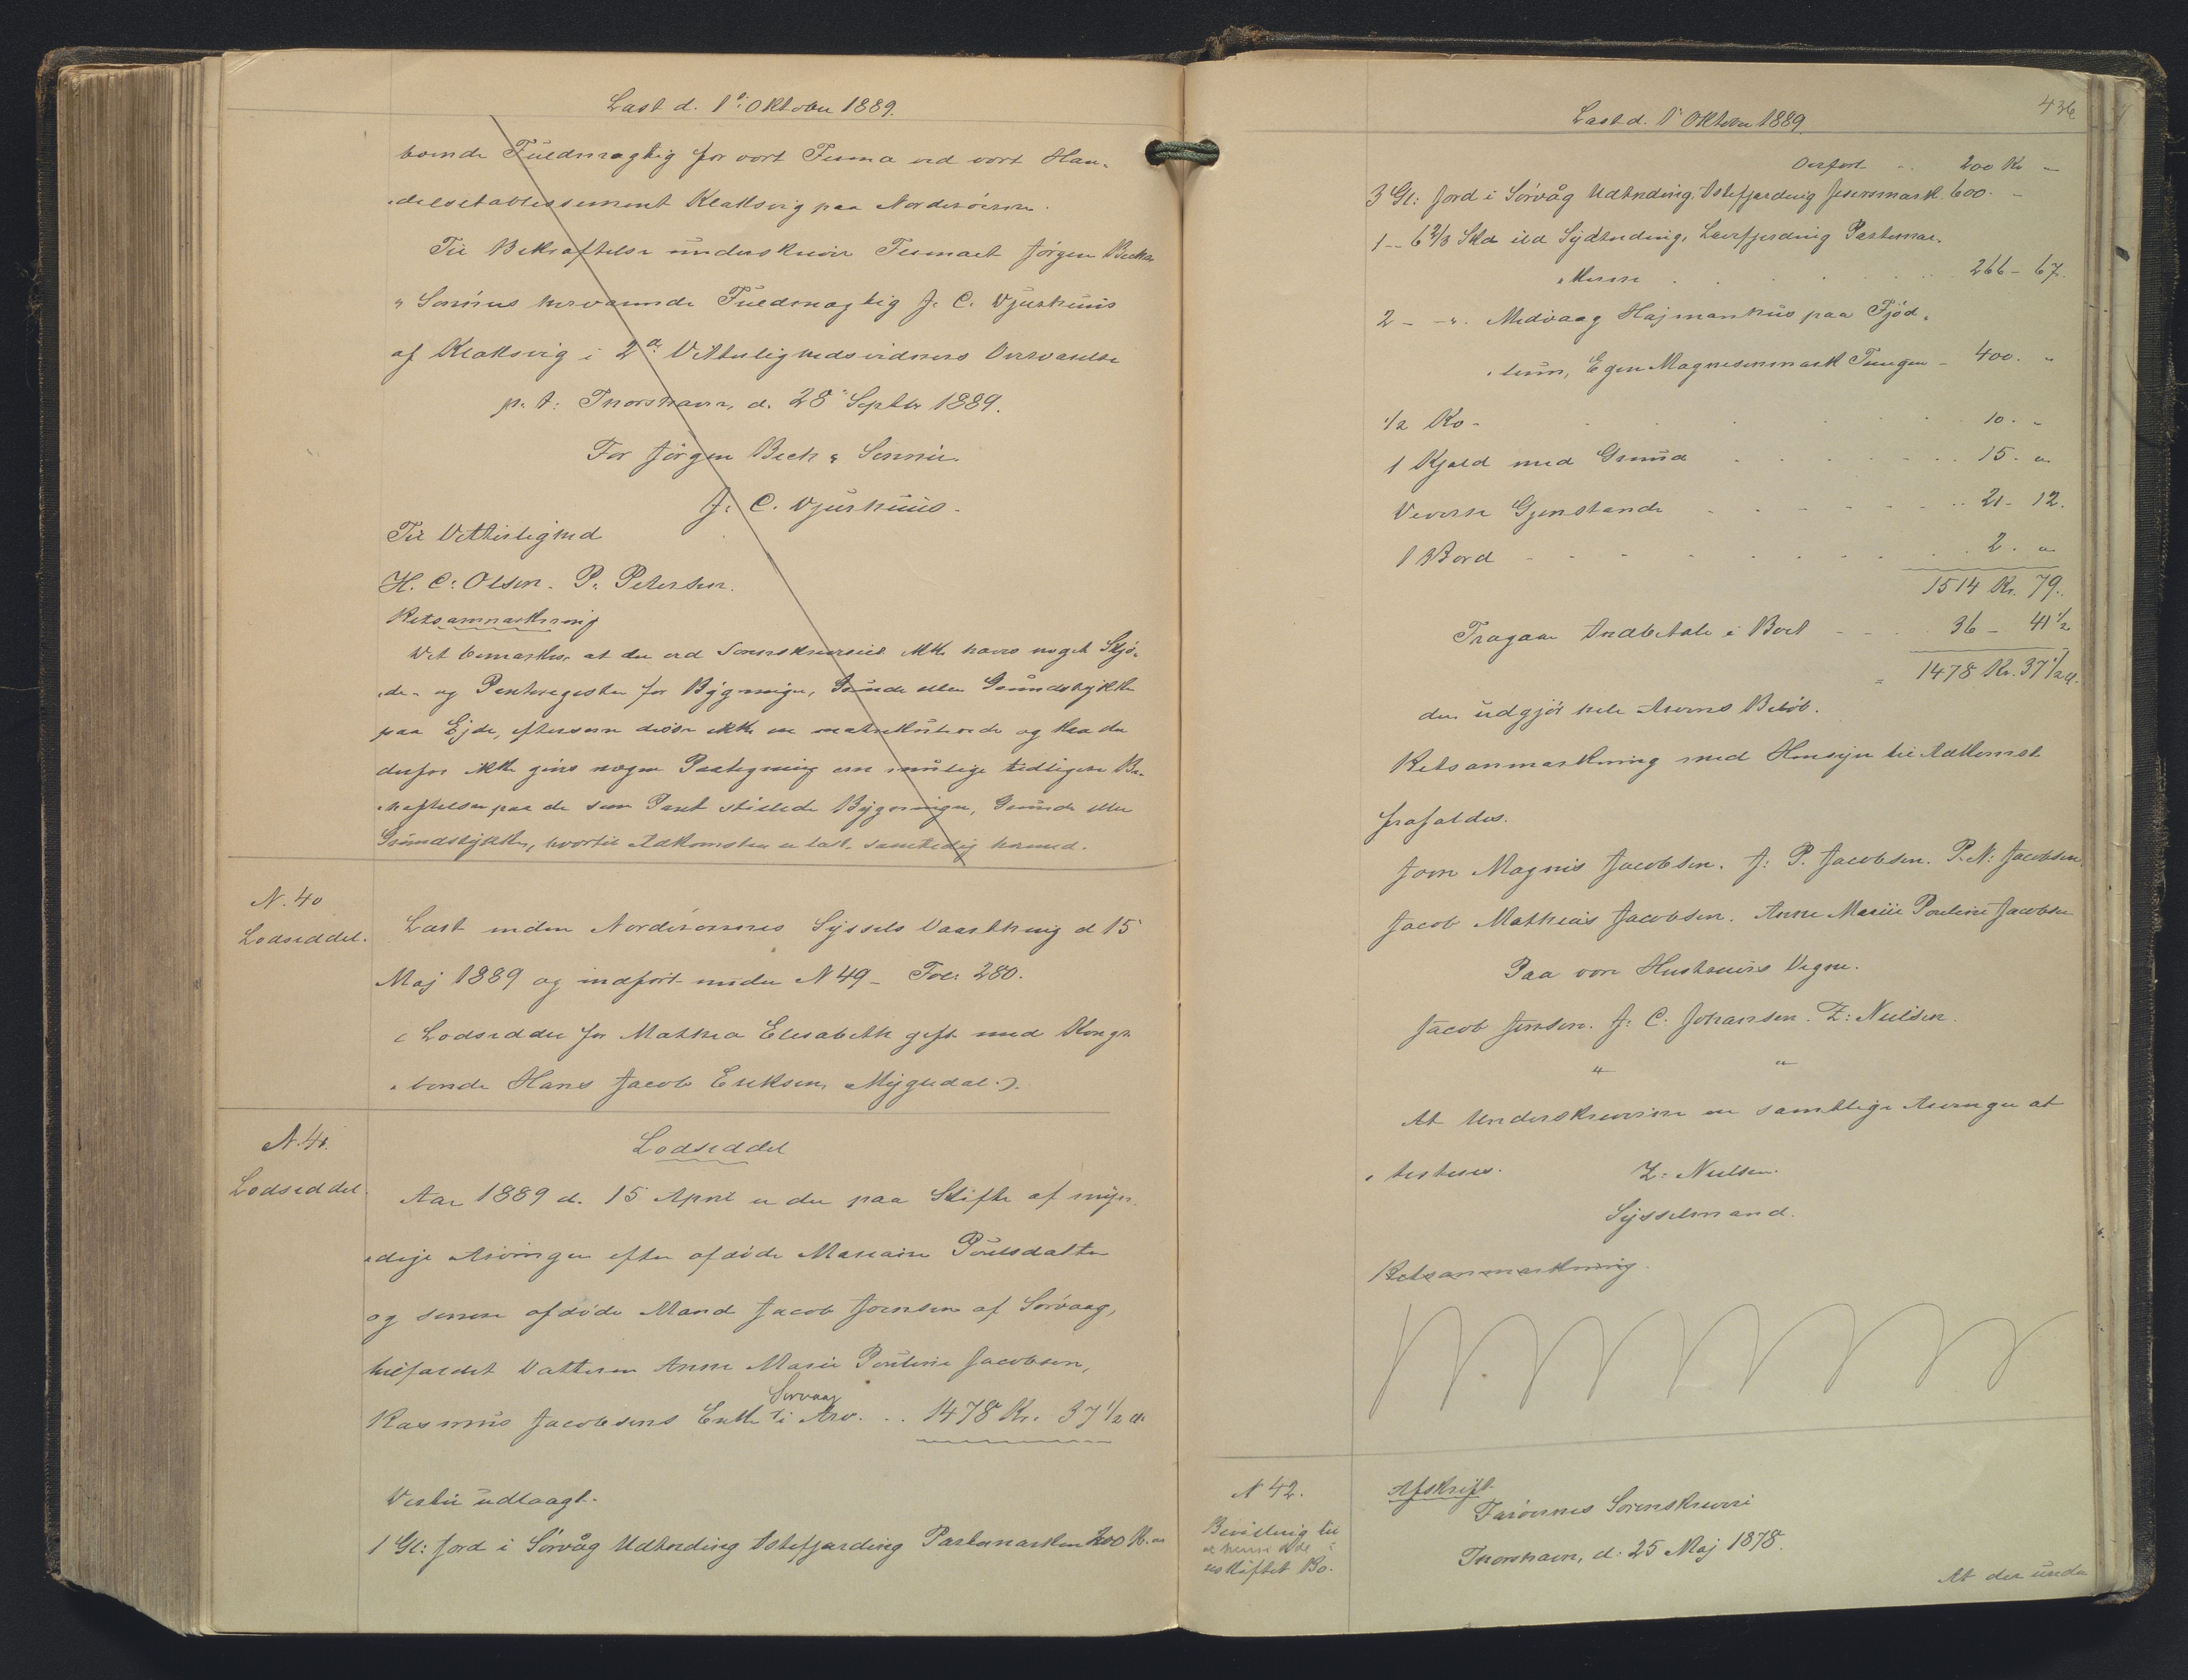 Læst d. 1ste Oktober 1889.
boende Fuldmægtig for vort Firma ved vort Han-
delsetablissement Klaksvig paa Norderøerne.
Til Bekræftelse underskriver Firmaet Jørgen Bechs
& Sønners herværende Fuldmægtig J. C. Djurhuus
af Klaksvig i 2de Vitterlighedsvidners Overværelse
p. t. Thorshavn, d. 28 Septbr 1889.
For Jørgen Bech & Sønner.
J. C. Djurhuus.
Til Vitterlighed
H. C. Olsen. P. Petersen.
Retsanmærkning
Det bemærkes, at der ved Sorenskriveriet ikke haves noget Skjø-
de- og Panteregister for Bygninger, Grunde eller Grundstykker
paa Ejde, eftersom disse ikke ere matrikulerede og kan der
derfor ikke gives nogen Paategning om mulige tidligere Be-
hæftelser paa de som Pant stillede Bygninger, Grunde eller
Grundstykker, hvortil Adkomsten er læst samtidig hermed.
N. 40
Lodseddel.
Læst inden Norderøernes Syssels Vaarthing d 15
Maj 1889 og indført under N 49 - Fol: 280.
(Lodseddel for Mathea Elisabeth gift med Kongs-
bonde Hans Jacob Eriksen, Mygledal.)
N. 41.
Lodseddel.
Lodseddel
Aar 1889 d. 15 April er der paa Skifte af myn-
dige Arvinger efter afdøde Mariane Poulsdatter
og senere afdøde Mand Jacob Joensen af Sørvaag,
tilfaldet Datteren Anne Marie Pouline Jacobsen,
Rasmus Jacobsens Enke Sørvaag i Arv. .. 1478 Kr. 37 1/2 Ø
Dertil udlagt.
1 Gl: Jord i Sørvåg Udtnding Østefjerding Partemarken 200 Kr. "
436.
Læst d. 1ste Oktober 1889.
Overført .. 200 Kr "
3 Gl: Jord i Sørvåg Udtnding, Østefjerding Jensmark 600. "
1 - 6 2/3 Skd ibd Sydtnding, Lærfjerding Partemar-
kerne . . . 266 - 67.
2 - - ". Midvaag Hajmanhus paa Fjød-
lum, Egen Magnesenmark Tungen - 400. "
1/2 Ko - . . . 10. "
1 Kjæld med Grund . . . 15. "
Diverse Gjenstande - - - 21 - 12.
1 Bord - - - 2. "
1514 Kr. 79.
Fragaar Indbetale i Boet - - 36 - 41 1/2
= 1478 Kr. 37 1/2 Ø.
der udgjør hele Arvens Beløb.
Retsanmærkning med Hensyn til Adkomst
frafaldes.
Joen Magnus Jacobsen. J. P. Jacobsen. P. N. Jacobsen.
Jacob Mathias Jacobsen. Anne Marie Pouline Jacobsen
Paa vore Hustruers Vegne.
Jacob Jensen. J. C. Johansen. Z. Nielsen.
" "
At Underskriverne ere samtlige Arvinger at-
testeres. Z. Nielsen.
Sysselmand.
Retsanmærkning.
N 42.
Bevilling til
at hensidde i
uskiftet Bo.
Afskrift
Færøernes Sorenskriveri
Thorshavn, d: 25 Maj 1878.
At der under